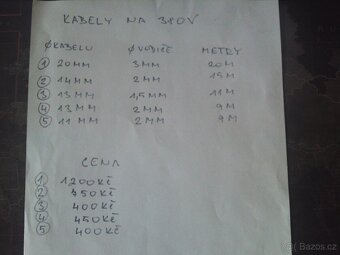 KABELY NA 380V
Ø KABELU Ø VODIČE METRY
① 20MM 3MM 20M
② 14MM 2MM 15M
③ 13MM 1,5MM 11M
④ 13MM 2MM 9M
⑤ 11MM 2MM 9M
CENA
① 1200KČ
② 450KČ
③ 400KČ
④ 450KČ
⑤ 400KČ
Bazoš.cz